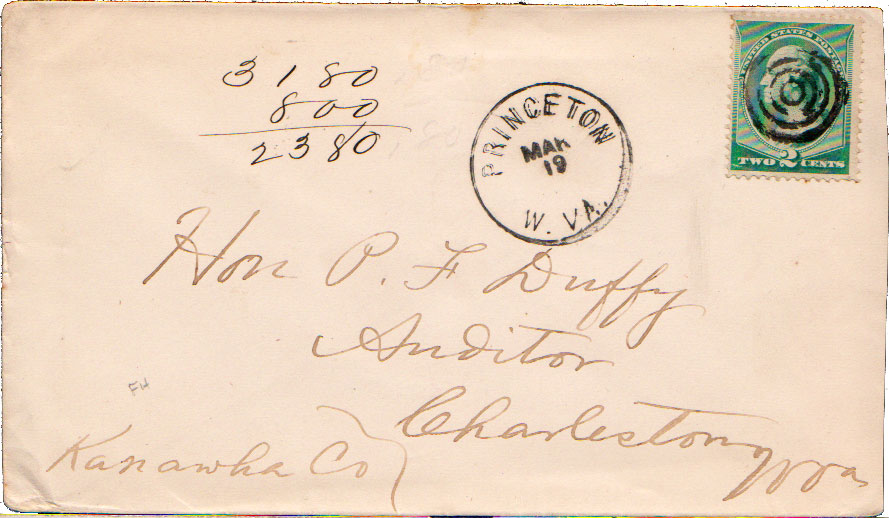 3180
800
2380
PRINCETON
MAR
19
W. VA.
UNITED STATES POSTAGE
TWO 2 CENTS
Hon P. F Duffy
Auditor
Charleston
Kanawha Co
W Va
FH